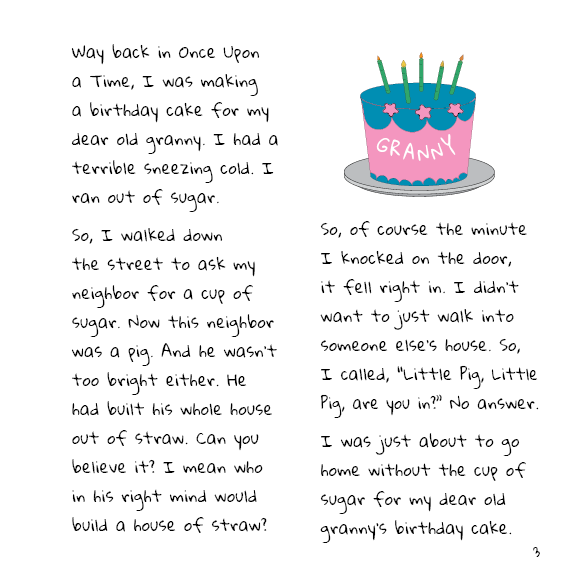 Way back in Once Upon
a Time, I was making
a birthday cake for my
dear old granny. I had a
terrible sneezing cold. I
ran out of sugar.
So, I walked down
the street to ask my
neighbor for a cup of
sugar. Now this neighbor
was a pig. And he wasn't
too bright either. He
had built his whole house
out of straw. Can you
believe it? I mean who
in his right mind would
build a house of straw?
GRANNY
So, of course the minute
I knocked on the door,
it fell right in. I didn't
want to just walk into
someone else's house. So,
I called, "Little Pig, Little
Pig, are you in?" No answer.
I was just about to go
home without the cup of
sugar for my dear old
granny's birthday cake.
3